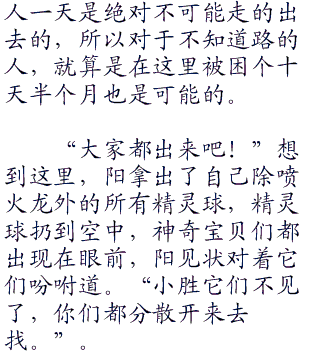 人一天是绝对不可能走的出
去的，所以对于不知道路的
人，就算是在这里被困个十
天半个月也是可能的。
“大家都出来吧！”想
到这里，阳拿出了自己除喷
火龙外的所有精灵球，精灵
球扔到空中，神奇宝贝们都
出现在眼前，阳见状对着它
们吩咐道。“小胜它们不见
了，你们都分散开来去
找。”。